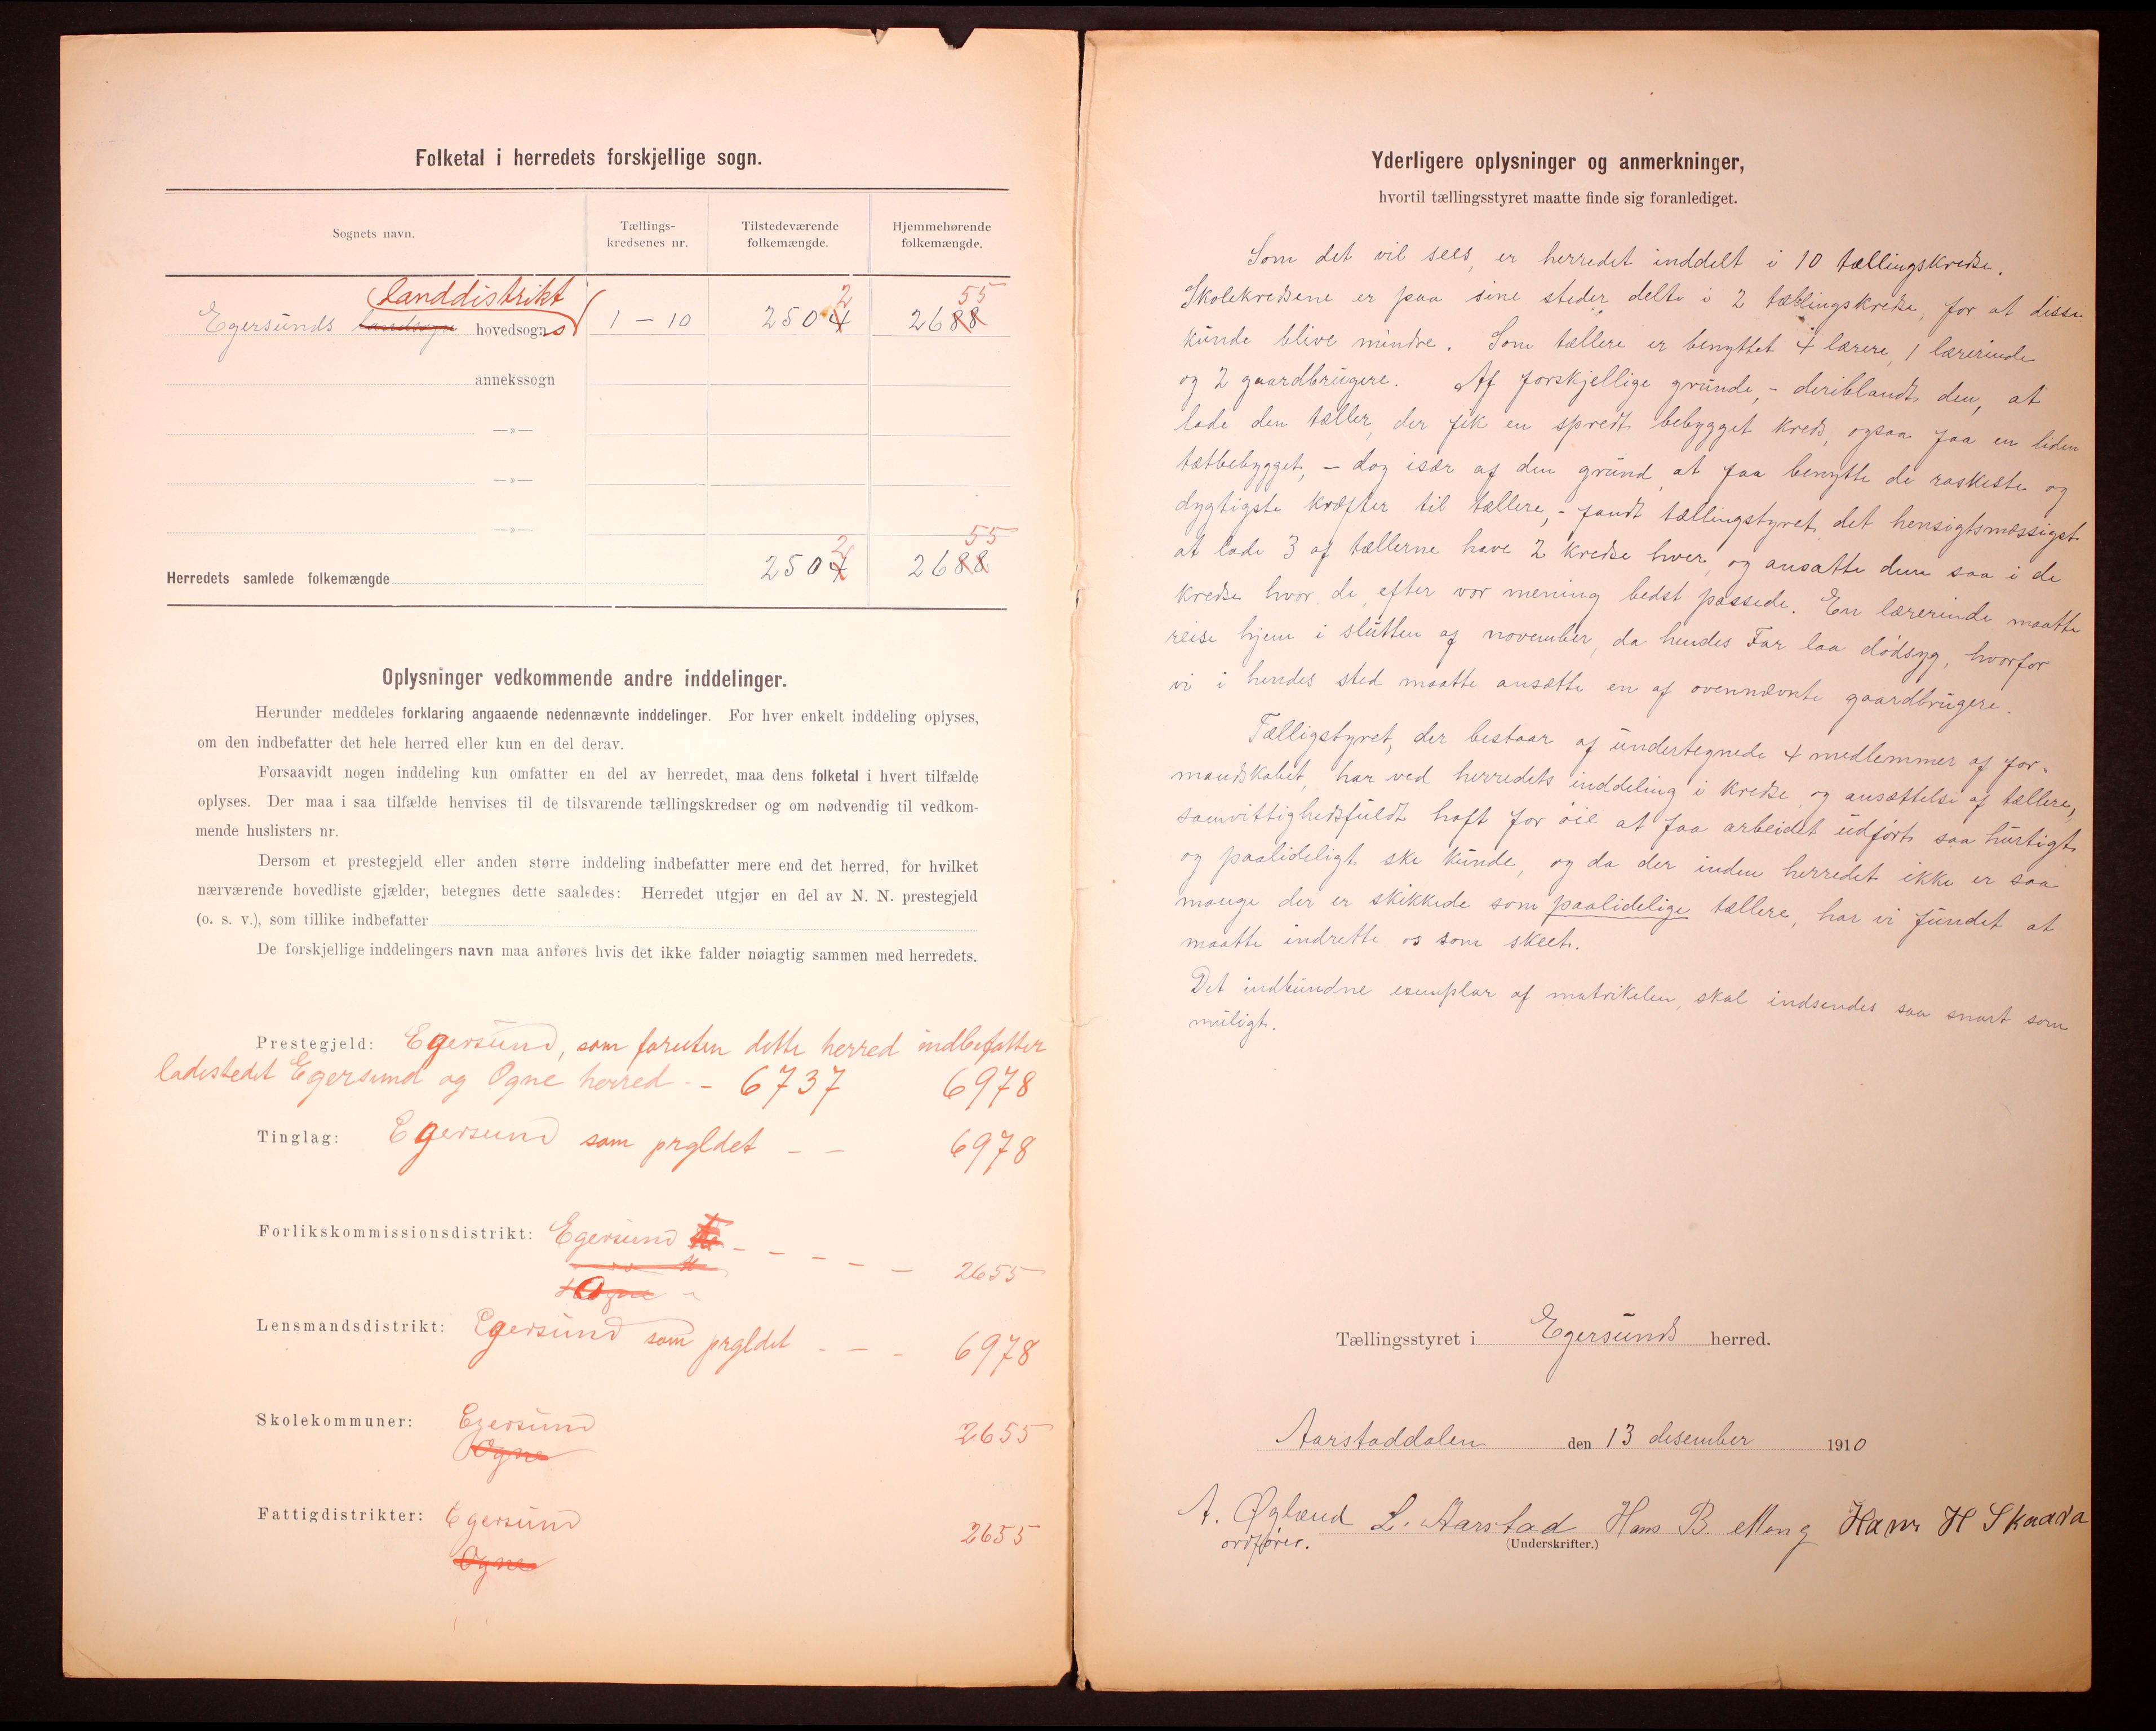 Folketal i herredets forskjellige sogn.
Sognets navn.
Tællings-
kredsenes nr.
Tilstedeværende
folkemængde.
Hjemmehørende
folkemængde.
landdistrikt 2 55
Egersunds landsogns hovedsogns 1 – 10 2504 2688
annekssogn
—»—
—»—
—»—
2 55
Herredets samlede folkemængde 2504 2688
Oplysninger vedkommende andre inddelinger.
Herunder meddeles forklaring angaaende nedennævnte inddelinger. For hver enkelt inddeling oplyses,
om den indbefatter det hele herred eller kun en del derav.
Forsaavidt nogen inddeling kun omfatter en del av herredet, maa dens folketal i hvert tilfælde
oplyses. Der maa i saa tilfælde henvises til de tilsvarende tællingskredser og om nødvendig til vedkom-
mende huslisters nr.
Dersom et prestegjeld eller anden større inddeling indbefatter mere end det herred, for hvilket
nærværende hovedliste gjælder, betegnes dette saaledes: Herredet utgjør en del av N. N. prestegjeld
(o. s. v.), som tillike indbefatter
De forskjellige inddelingers navn maa anføres hvis det ikke falder nøiagtig sammen med herredets.
Prestegjeld: Egersund, som foruten dette herred indbefatter
ladestedet Egersund og Ogne herred - - 6737 6978
Tinglag: Egersund som prgldet - - 6978
Forlikskommissionsdistrikt: Egersund - - - - - 2655
Ogne
Lensmandsdistrikt: Egersund som prgldet - - - 6978
Skolekommuner: Egersund 2655
Ogne
Fattigdistrikter: Egersund 2655
Ogne
Yderligere oplysninger og anmerkninger,
hvortil tællingsstyret maatte finde sig foranlediget.
Som det vil sees, er herredet inddelt i 10 tællingskredse.
Skolekredsene er paa sine steder delte i 2 tællingskredse, for at disse
kunde blive mindre. Som tællere er benyttet 4 lærere, 1 lærerinde
og 2 gaardbrugere. Af forskjellige grunde, - deriblandt den, at
lade den tæller, der fik en spredt bebygget kreds, ogsaa faa en liden
tætbebygget, - dog især af den grund, at faa benytte de raskeste og
dygtigste kræfter til tællere, - fandt tællingstyret det hensigtsmæssigst
at lade 3 af tællerne have 2 kredse hver, og ansatte dem saa i de
kredse hvor de, efter vor mening bedst passede. En lærerinde maatte
reise hjem i slutten af november, da hendes Far laa dødsyg, hvorfor
vi i hendes sted maatte ansætte en af ovennævnte gaardbrugere.
Tælligstyret, der bestaar af undertegnede 4 medlemmer af for-
mandskabet, har ved herredets inddeling i kredse, og ansættelse af tællere,
samvittighedsfuldt haft for øie at faa arbeidet udført saa hurtigt
og paalideligt ske kunde, og da der inden herredet ikke er saa
mange der er skikkede som paalidelige tællere, har vi fundet at
maatte indrette os som skeet.
Det indbundne exemplar af matrikelen, skal indsendes saa snart som
muligt.
Tællingsstyret i Egersunds herred.
Aarstaddalen den 13 desember 1910
A. Øglænd L. Aarstad Hans B. Mong Hans H Skaara
ordfører. (Underskrifter.)